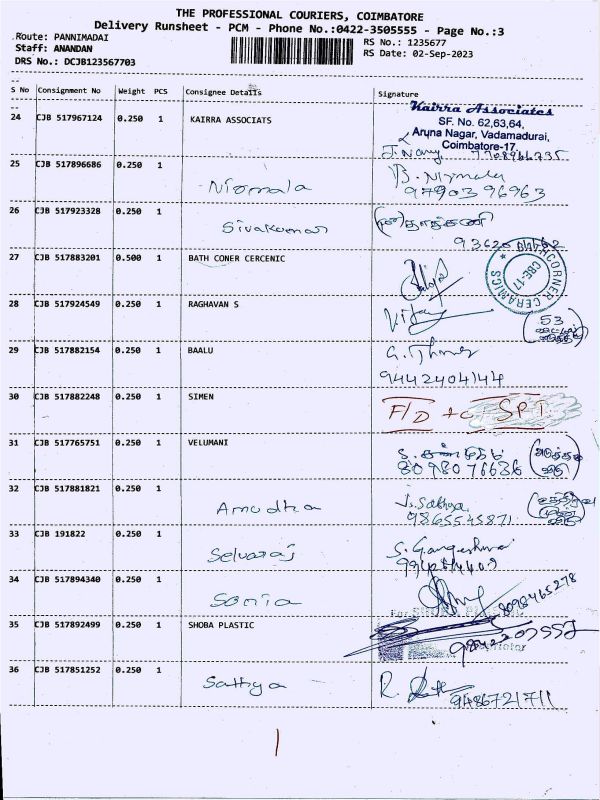 THE PROFESSIONAL COURIERS, COIMBATORE
Delivery Runsheet - PCM - Phone No.:0422-3505555 - Page No.:3
Route: PANNIMADAI
RS No.: 1235677
Staff: ANANDAN
RS Date: 02-Sep-2023
DRS No.: DCJB123567703
S No Consignment No Weight PCS Consignee Details Signature
24 CJB 517967124 0.250 1 KAIRRA ASSOCIATS
Kairra Associates
SF. No. 62,63,64,
Aruna Nagar, Vadamadurai,
Coimbatore-17.
25 CJB 517896686 0.250 1 Nirmala B. Nirmala
97903 96963
26 CJB 517923328 0.250 1 Sivakumar
27 CJB 517883201 0.500 1 BATH CONER CERCENIC
BATHCORNER CERAMICS
CBE-17
28 CJB 517924549 0.250 1 RAGHAVAN S
53
29 CJB 517882154 0.250 1 BAALU
9442404144
30 CJB 517882248 0.250 1 SIMEN F/D
31 CJB 517765751 0.250 1 VELUMANI
8098076636
32 CJB 517881821 0.250 1 Amudha J. Sathya
9865545871
33 CJB 191822 0.250 1 Selvaraj
34 CJB 517894340 0.250 1 Sonia
8098465278
35 CJB 517892499 0.250 1 SHOBA PLASTIC
For
Proprietor
36 CJB 517851252 0.250 1 Sathya R.
9486721711